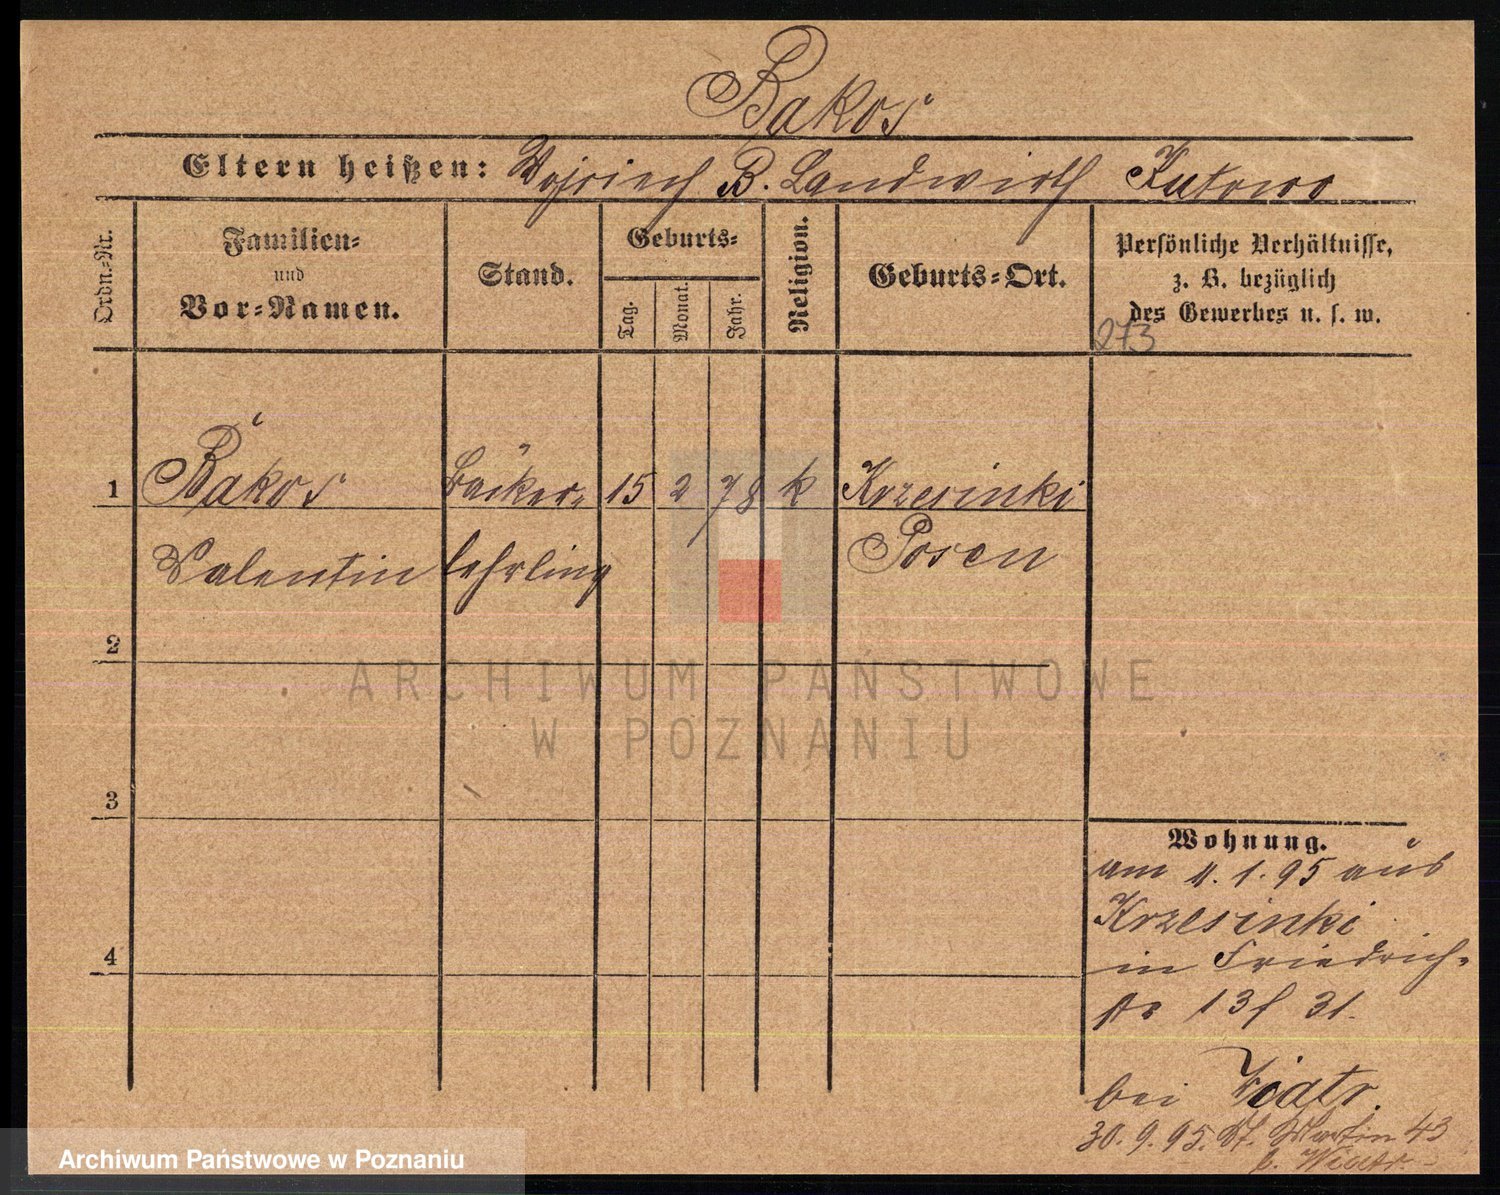 Bakos
Eltern heißen: Wojciech B. Landwirth Kutowo
Ordn.-Nr.
Familien-
und
Vor-Namen.
Stand.
Geburts-
Tag.
Monat.
Jahr.
Religion.
Geburts-Ort.
Persönliche Verhältnisse,
z. B. bezüglich
des Gewerbes u. s. w.
273
1 Bakos Bäcker- 15 2 78 k Krzesinki
Valentin lehrling Posen
2
3
4
Wohnung.
am 11.1.95 aus
Krzesinki
in Friedrich-
str 31.
bei Wiatr.
30.9.95. St. Martin 43
b. Wiatr.
ARCHIWUM PAŃSTWOWE
W POZNANIU
Archiwum Państwowe w Poznaniu